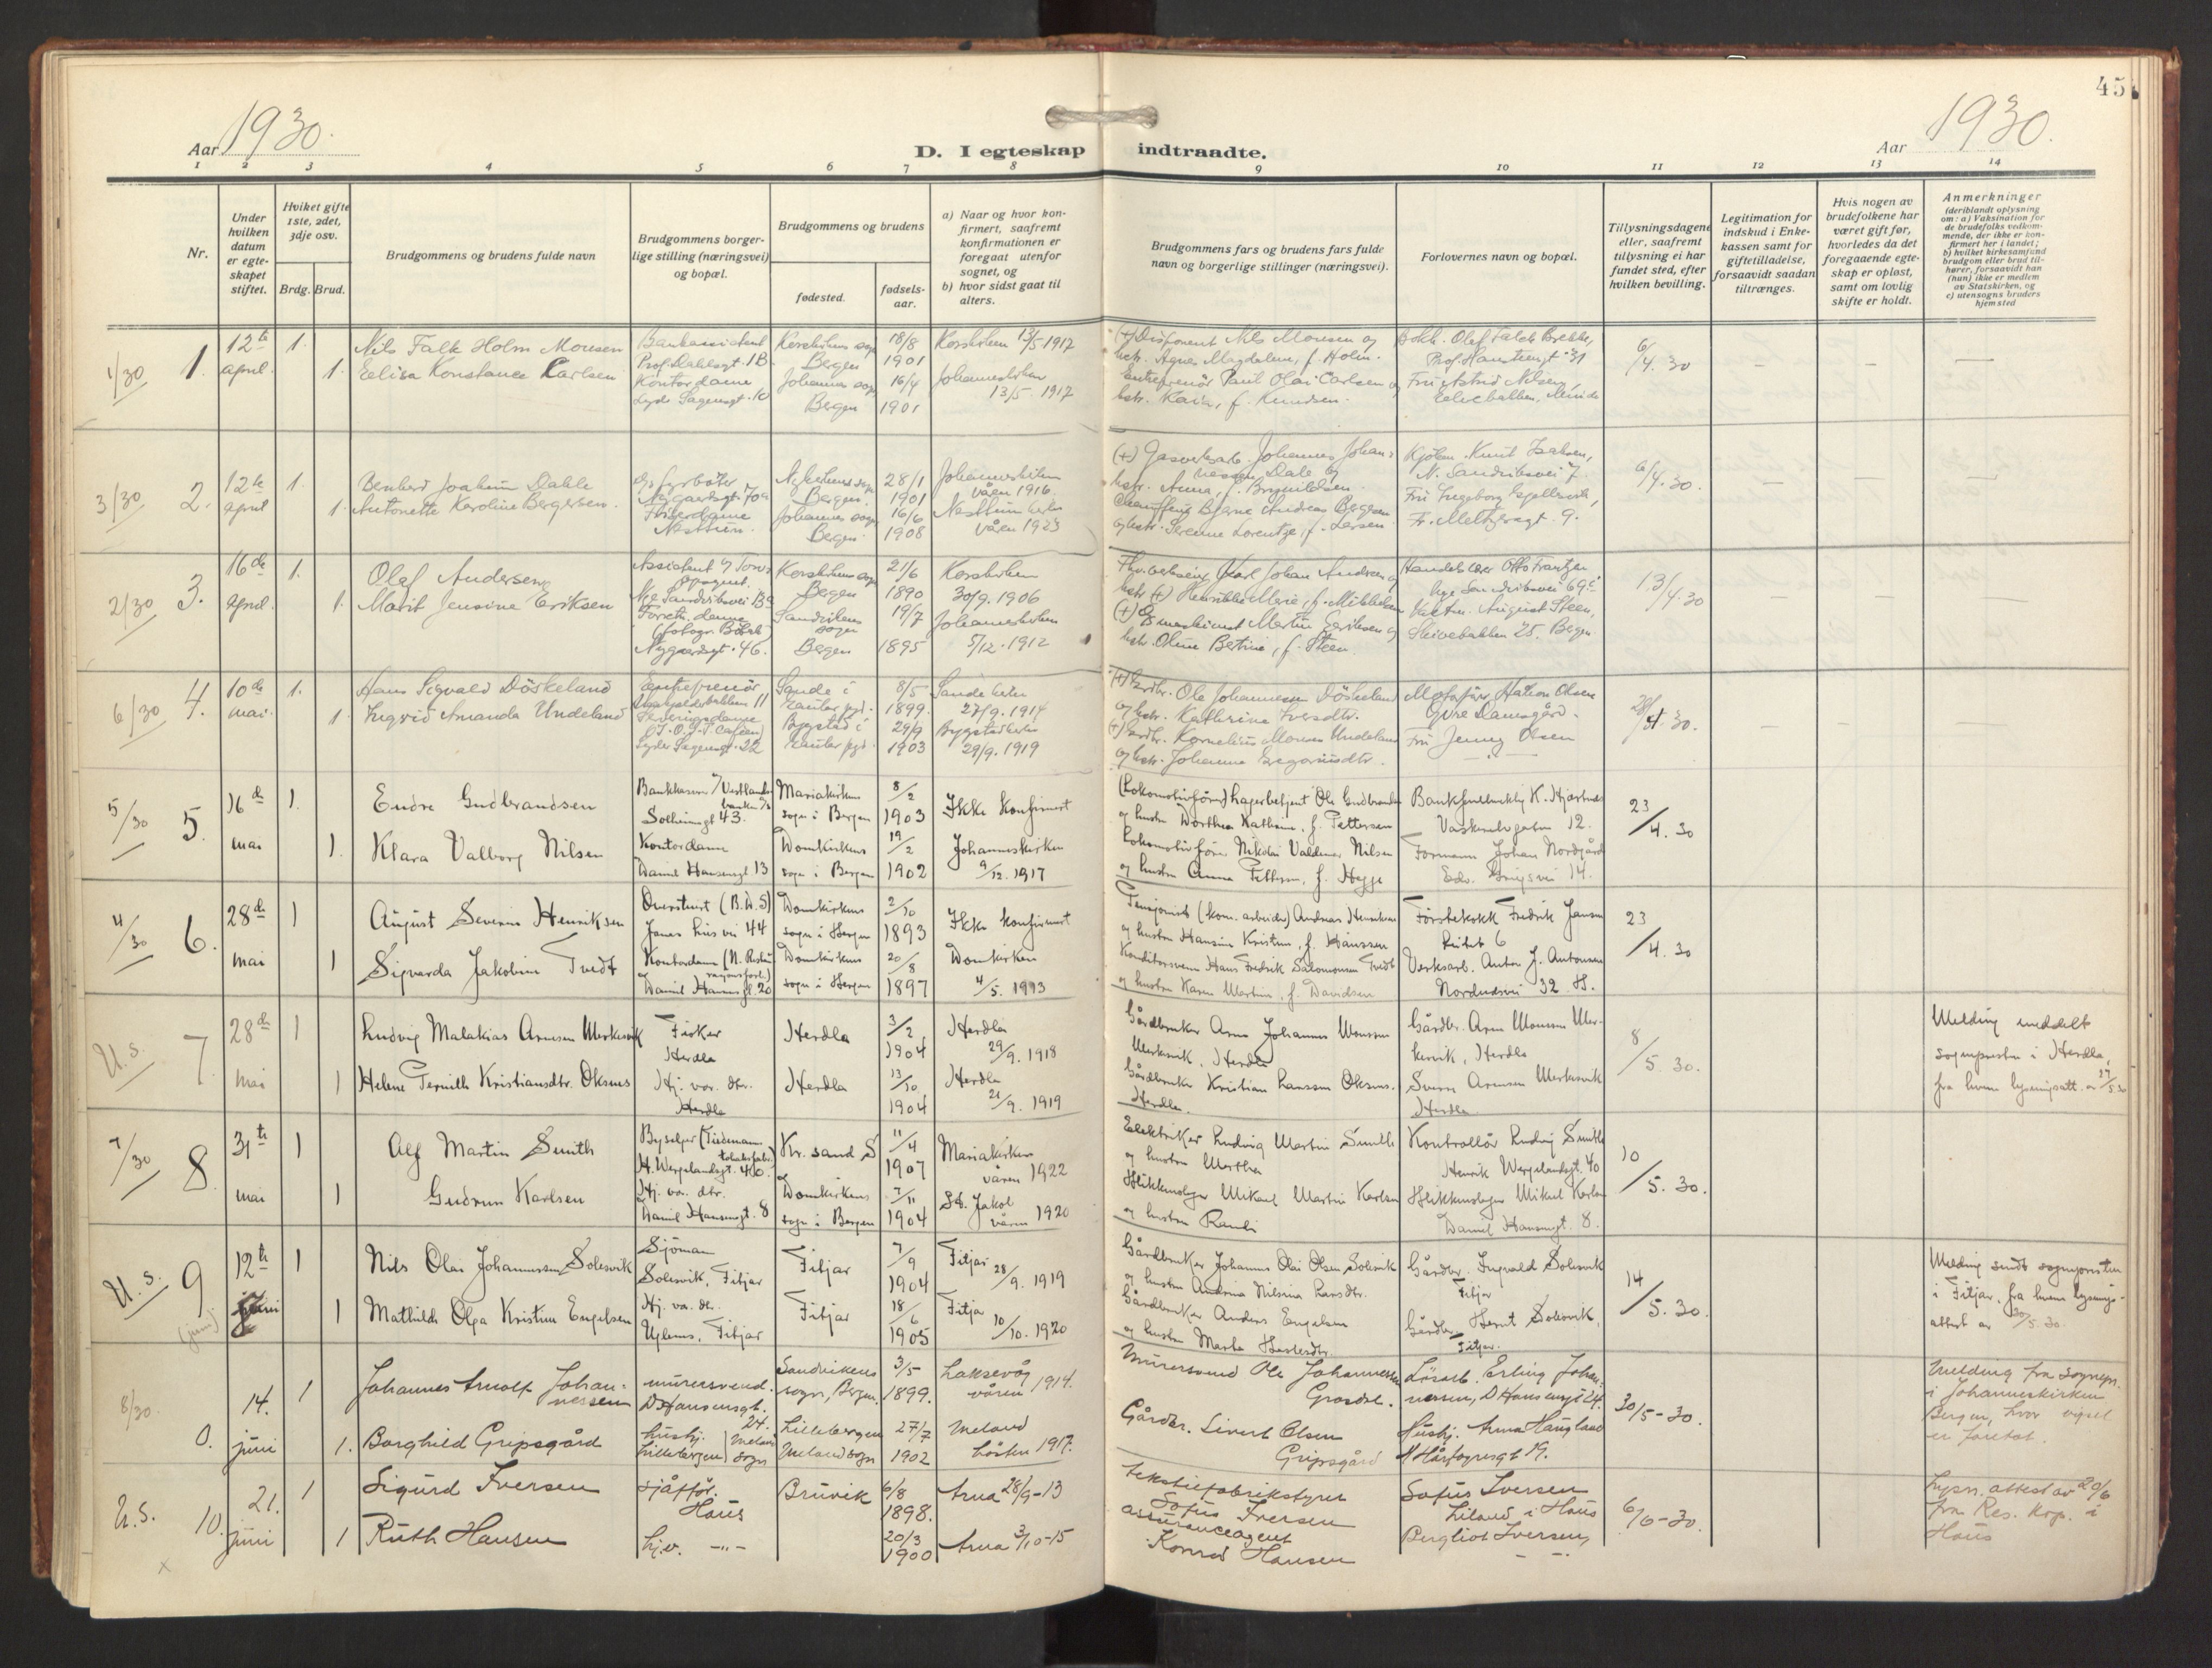 45
Aar 1930.
D. I egteskap indtraadte.
Aar 1930.
1 2 3 4 5 6 7 8 9 10 11 12 13 14
Nr.
Under hvilken datum er egteskapet stiftet.
Hvilket gifte 1ste, 2det, 3dje osv.
Brdg. Brud.
Brudgommens og brudens fulde navn
Brudgommens borgerlige stilling (næringsvei) og bopæl.
Brudgommens og brudens
fødested.
fødselsaar.
a) Naar og hvor konfirmert, saafremt konfirmationen er foregaat utenfor sognet, og
b) hvor sidst gaat til alters.
Brudgommens fars og brudens fars fulde navn og borgerlige stillinger (næringsvei).
Forlovernes navn og bopæl.
Tillysningsdagene eller, saafremt tillysning ei har fundet sted, efter hvilken bevilling.
Legitimation for indskud i Enkekassen samt for giftetilladelse, forsaavidt saadan tiltrænges.
Hvis nogen av brudefolkene har været gift før, hvorledes da det foregaaende egteskap er opløst, samt om lovlig skifte er holdt.
Anmerkninger
(deriblandt oplysning om: a) Vaksination for de brudefolks vedkommende, der ikke er konfirmert her i landet; b) hvilket kirkesamfund brudgom eller brud tilhører, forsaavidt han (hun) ikke er medlem av Statskirken, og c) utensogns bruders hjemsted
1/30 1. 12te april 1. 1.
Nils Falk Holm Monsen
Elisa Konstance Carlsen
Bankassistent
Prof. Dahlsgt. 1B.
Kontordame
Lyder Sagensgt. 10
Korskirkens sogn
Bergen
Johannes sogn
Bergen
18/8 1901
16/4 1901
Korskirken 13/5 1917
Johanneskirken 13/5 1917
(+) Disponent Nils Monsen og
hstr. Agnes Magdalene, f. Holm.
Entreprenör Paul Olai Carlsen og
hstr. Kaia, f. Knudsen.
Prof. Hanstengt. 31
Fru Astrid Nilsen,
6/4. 30
3/30 2. 12te april 1. 1.
Bernhard Joakim Dahle
Antonette Karoline Bergersen.
fyrböter
Nygaardsgt. 70a
Frisørdame
Nesttun.
Nykirkens sogn
Bergen.
Johannes sogn
Bergen.
28/1 1901
16/6 1908
Johanneskirken
våren 1916.
Nesttun kirke
våren 1923
(+) Gasverksarb. Johannes Johannessen Dale og
hstr. Anna, f. Brynildsen.
Chauffeur Bjarne Andreas Bergersen
og hstr. Serine Lorentze, f. Larsen
Kjöbm. Knut Isaksen,
N. Sandviksvei 7.
Fru Ingeborg
Fr. Meltzersgt. 9.
6/4. 30.
2/30 3. 16de april 1. 1.
Olaf Andersen
Marit Jensine Eriksen
Assistent
Nye Sandviksvei
Forretn. dame
Nygaardsgt. 46.
Korskirkens sogn
Bergen
Sandvikens sogn
Bergen
21/6 1890
19/7 1895
Korskirken
30/9. 1906
Johanneskirken
5/12. 1912
Karl Johan Andersen og
hstr. (+) Henrikke Marie, f. Mikkelsen
(+) Maskinist Martin Eriksen og
hstr. Oline Bertine, f. Steen.
Otto Frantzen
Nye Sandviksvei 69c
August Steen,
Skivebakken 25. Bergen
13/4. 30
6/30 4. 10de mai. 1. 1
Hans Sigvald Döskeland
Ingrid Amanda Undeland
Entreprenör
Serveringsdame
(I.O.G.T. cafeen)
Lyder Sagensgt. 22
Sande i
Gaular pgd.
Bygstad i
Gaular pgd.
8/5 1899.
29/9 1903
Sande kirke
27/9. 1914
Bygstad kirke
29/9. 1919
(+) Grdbr. Ole Johannessen Döskeland
og hstr. Kathrine Iversdtr.
(+) Grdbr. Kornelius Monsen Undeland
og hstr. Johanna Gregoriusdtr.
Håkon Olsen
Övre Damsgård.
Fru Jenny Olsen
28/4. 30.
5/30 5. 16de mai 1. 1.
Endre Gudbrandsen
Klara Valborg Nilsen
Bankkasserer v/ Vestlandsbanken A/S
Solheimsgt 43.
Kontordame
Daniel Hansensgt 13
Mariakirkens
sogn i Bergen
Domkirkens
sogn i Bergen
8/2 1903
19/2 1902
Ikke konfirmert
Johanneskirken
9/12. 1917
(Lokomotivfører) Lagerbetjent Ole Gudbrandsen
og hustru Dorthea Kathrine, f. Pettersen
Lokomotivfører Nikolai Valdemar Nilsen
og hustru Anna Petterea, f. Hegge
Bankfuldmektig K. Hjartnes
Vaskerelvgaten 12.
Formann Johan Nordgård
Edv. Griegsvei 14.
23/4. 30
4/30 6. 28de mai 1 1
August Severin Henriksen
Sigvarda Jakobine Tvedt
Overstuert (B.D.S)
Jonas Lies vei 44
Kontordame
Daniel Hansensgt. 20
Domkirkens
sogn i Bergen
Domkirkens
sogn i Bergen
2/10 1893
20/8 1897
Ikke konfirmert
Domkirken
4/5. 1913
Pensjonist (kom. arbeider) Andreas Henriksen
og hustru Hansine Kristine, f. Hanssen
Konditorsvenn Hans Fredrik Salomonsen Tvedt
og hustru Karen Martine, f. Davidsen
Førstekokk Fredrik Jansen
6
Verksarb. Anton J. Antonsen
Nordnesvei 32 H.
23/4. 30
U.s. 7. 28de mai 1 1
Ludvig Malakias Arnesen Merkesvik
Helene Pernille Kristiansdtr. Oksnes
Fisker
Herdla
Hj. vær. dtr.
Herdla
Herdla
Herdla
3/2 1904
13/10 1904
Herdla
29/9. 1918
Herdla
21/9. 1919
Gårdbruker Arne Johannes Monssen
Merkesvik, Herdla
Gårdbruker Kristian Larssen Oksnes.
Herdla.
Gårdbr. Arne Monssen Merkesvik, Herdla
Sverre Arnesen Merkesvik
Herdla
8/5. 30.
Melding meddelt
sogneprestn i Herdla,
fra hvem lysningsatt. av 27/5 30
7/30 8. 31te mai 1 1
Alf Martin Smith
Gudrun Karlsen
Byselger (Tiedemanns tobaksfabr.)
H. Wergelandsgt. 40.
Hj. vær. dtr.
Daniel Hansensgt. 8
Kr. sand S
Domkirkens
sogn i Bergen
11/4 1907
7/11 1904
Mariakirken
våren 1922
St. Jakob
våren 1920
Elektriker Ludvig Martin Smith
og hustru Marthea
Blikkenslager Mikael Martin Karlsen
og hustru Randi
Kontrollör Ludvig Smith
Henrik Wergelandsgt. 40
Blikkenslager Mikael Karlsen
Daniel Hansensgt. 8.
10/5. 30.
U.s. 9 12te juni (juni) 1 1
Nils Olai Johannessen Solesvik
Mathilde Olga Kristine Engelsen
Sjömann
Solesvik, Fitjar
Hj. vær. dtr.
Fitjar
Fitjar
Fitjar
7/9 1904
18/6 1905
Fitjar 28/9. 1919
Fitjar 10/10. 1920
Gårdbruker Johannes Olai Olsen Solesvik
og hustru Andrina Nilsina Larsdtr.
Gårdbruker Anders Engelsen
og hustru Marta
Gårdbr. Ingvald Solesvik
Fitjar
Gårdbr. Bernt Solesvik,
Fitjar.
14/5. 30.
Melding sendt sognepresten
i Fitjar, fra hvem lysnings-
attest av 30/5. 30.
8/30. 0. 14. juni 1 1.
Johannes Arnolf Johannessen
Borghild Gripsgård
murersvend.
D. Hansensgt. 24.
Husbj.
Lillebergen
Meland sogn
Sandvikens
sogn, Bergen.
Lillebergen
Meland sogn
3/5 1899.
27/7 1902
Laksevåg
våren 1914.
Meland
høsten 1917.
Murersvend Ole Johannessen
Gårdbr. Sivert Olsen
Gripsgård
Lösarb. Erling Johannessen, D. Hansensgt 24.
Husbj. Anna Haugland
30/5 - 30.
Melding fra sognepr.
i Johanneskirken
Bergen, hvor vigsel
er foretat.
U.s. 10. 21. juni 1 1
Sigurd Iversen
Ruth Hansen
sjåfför.
Haus
hj.v. -"-
Bruvik
6/8 1898.
20/3 1900
Arna 28/9-13
Arna 3/10-15
tekstilfabrikstyrer
Sofus Iversen
assuranceagent
Konrad Hansen
Sofus Iversen
i Haus
Bergliot Iversen,
6/6-30.
Lysn. attest av 20/6
fra Res. kap. i
Haus
x